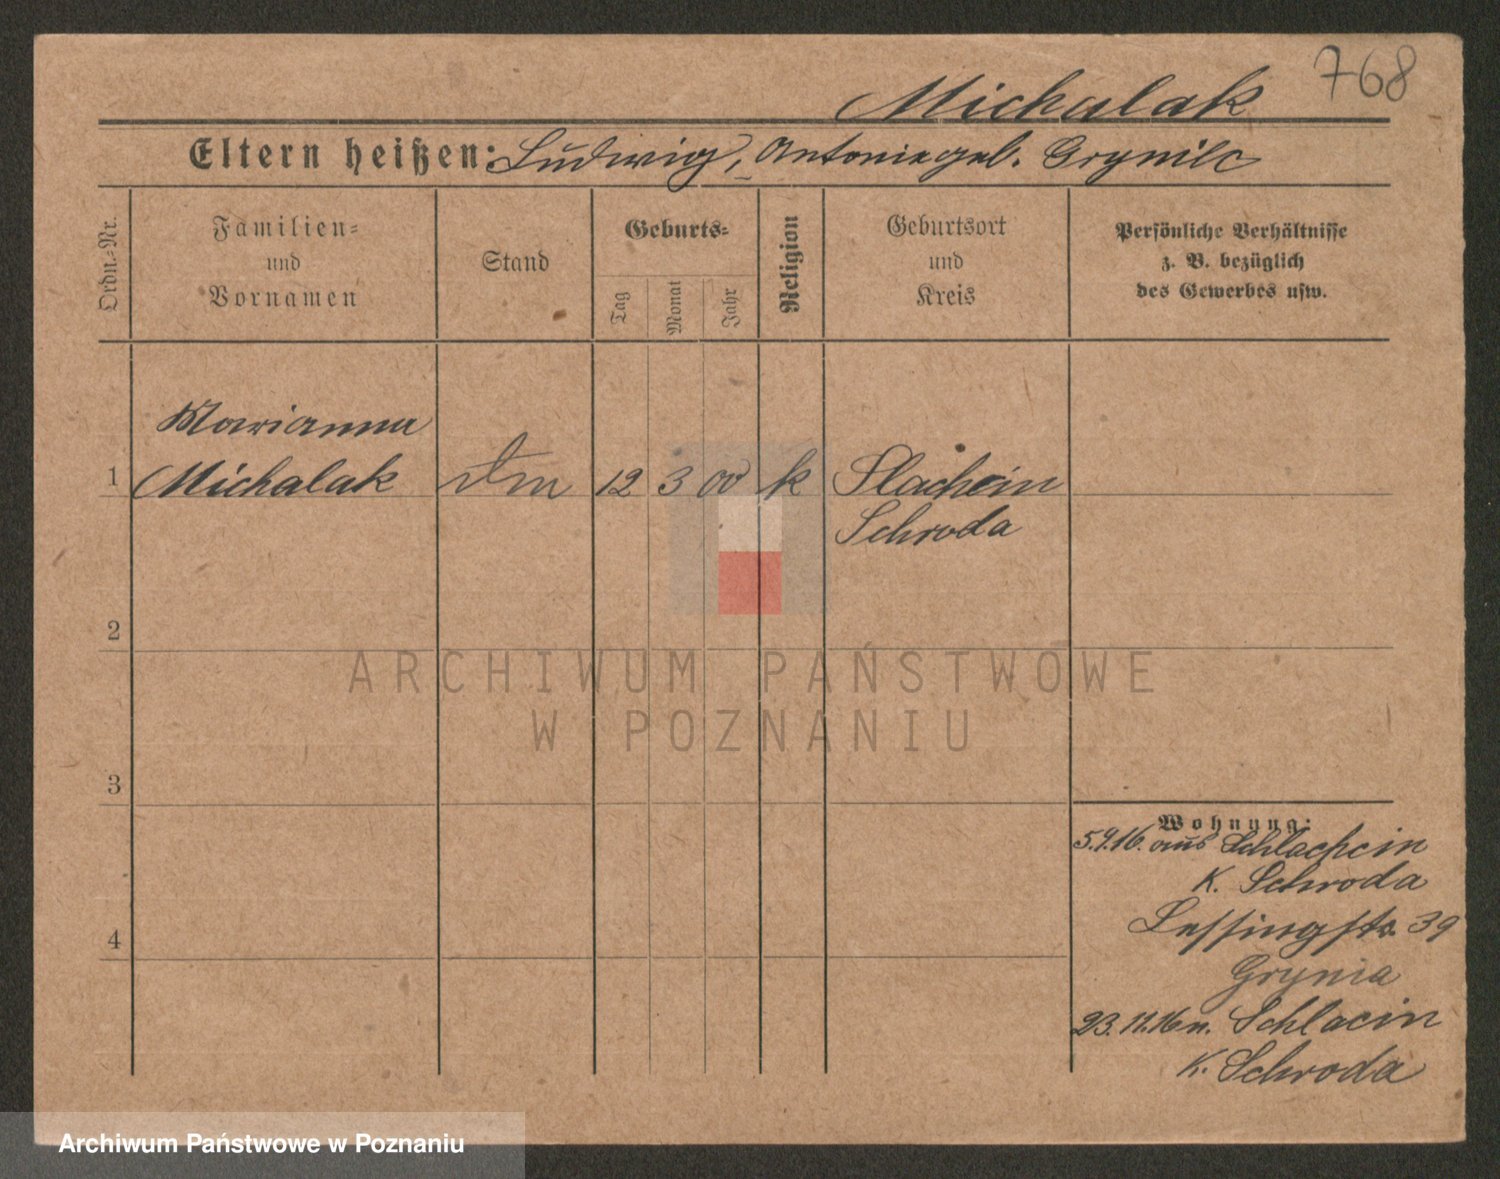 768
Michalak
Eltern heißen: Ludwig, Antonie geb. Grynile
Ordn.-Nr.
Familien-
und
Vornamen
Stand
Geburts-
Tag
Monat
Jahr
Religion
Geburtsort
und
Kreis
Persönliche Verhältnisse
z. B. bezüglich
des Gewerbes usw.
Marianna
1 Michalak 12 3 00 k Slachcin
Schroda
2
3
4
Wohnung:
5.9.16. aus Schlachcin
K. Schroda
Lessingstr. 39
Grynia
23.11.16 n. Schlacin
K. Schroda
ARCHIWUM PAŃSTWOWE
W POZNANIU
Archiwum Państwowe w Poznaniu